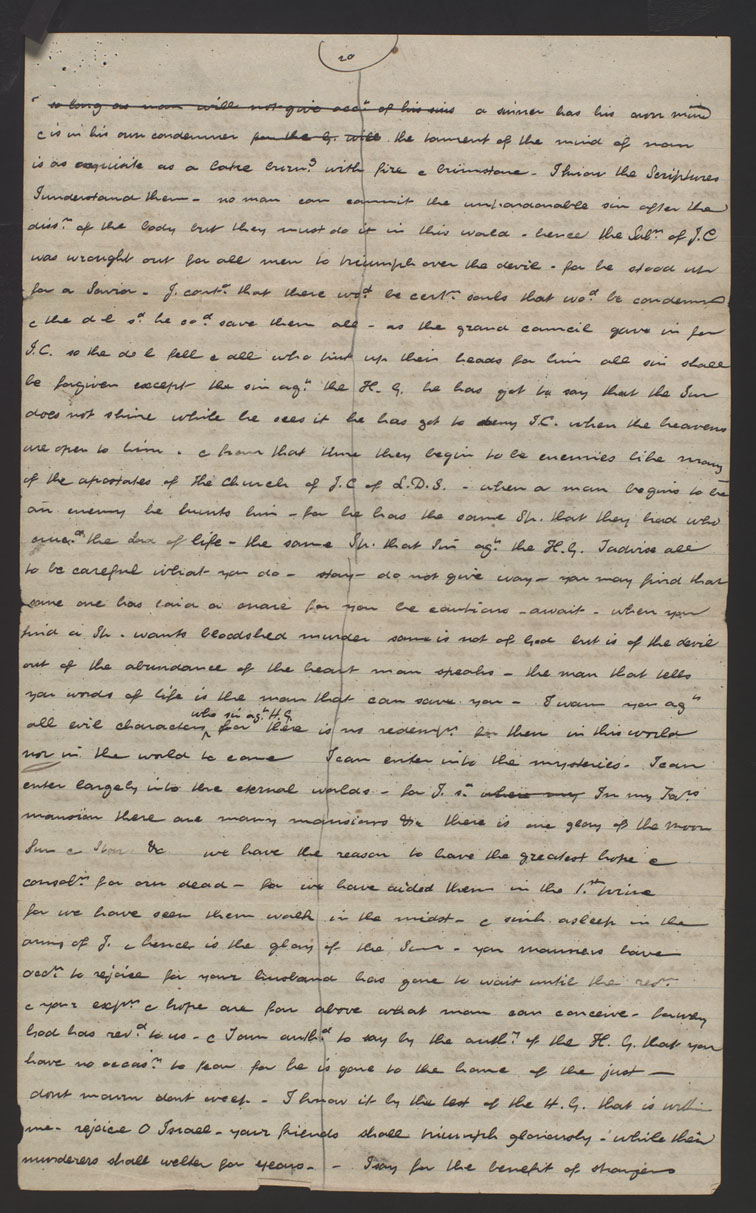 20
so long as man will not give accn. of his sins a sinner has his own mind
& is in his own condemner for the G. will the torment of the mind of man
is as exquisite as a lake burng. with fire & brimstone - I know the Scriptures
I understand them - no man can commit the unpardonable sin after the
dissn. of the body but they must do it in this world - hence the Saln. of J.C
was wrought out for all men to triumph over the devil - for he stood up
for a Savior - J. contd. that there wod. be certn. souls that wod. be condemned
& the d-l sd. he cod. save them all - as the grand council gave in for
J.C. so the d-l fell & all who put up their heads for him all sin shall
be forgiven except the sin agt. the H. G. he has got to say that the Sun
does not shine while he sees it he has got to deny J.C. when the heavens
are open to him. & from that time they begin to be enemies like many
of the apostates of the Church of J.C of L.D.S. - when a man begins to be
an enemy he hunts him - for he has the same Sp. that they had who
crucd. the Lord of life - the same Sp. that Sin agt. the H.G. I advise all
to be careful what you do - stay - do not give way - you may find that
some one has laid a snare for you be cautious - await - when you
find a Sp. wants bloodshed murder same is not of God but is of the devil
out of the abundance of the heart man speaks - the man that tells
you words of life is the man that can save you - I warn you agt.
who sin agt. H.G.
all evil characters for there is no redempn. for them in this world
nor in the world to come I can enter into the mysteries - I can
enter largely into the eternal worlds - for J. sd. where my In my Fars.
mansion there are many mansions &c there is one glory of the moon
Sun & Star &c we have the reason to have the greatest hope &
consoln. for our dead - for we have aided them in the 1st.
for we have seen them walk in the midst - & sink asleep in the
arms of J. & hence is the glory of the Sun - you mourners have
occn. to rejoice for your husband has gone to wait until the resn.
& your expns. & hope are far above what man can conceive - for why
God has revd. to us - & I am authd. to say by the authy. of the H. G. that you
have no occasn. to fear for he is gone to the home of the just -
dont mourn dont weep - I know it by the test of the H.G. that is within
me - rejoice O Israel - your friends shall triumph gloriously - while their
murderers shall welter for years - - I say for the benefit of strangers